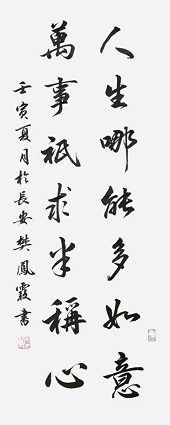 人生哪能多如意
萬事祇求半稱心
壬寅夏月於長安樊鳳霞書